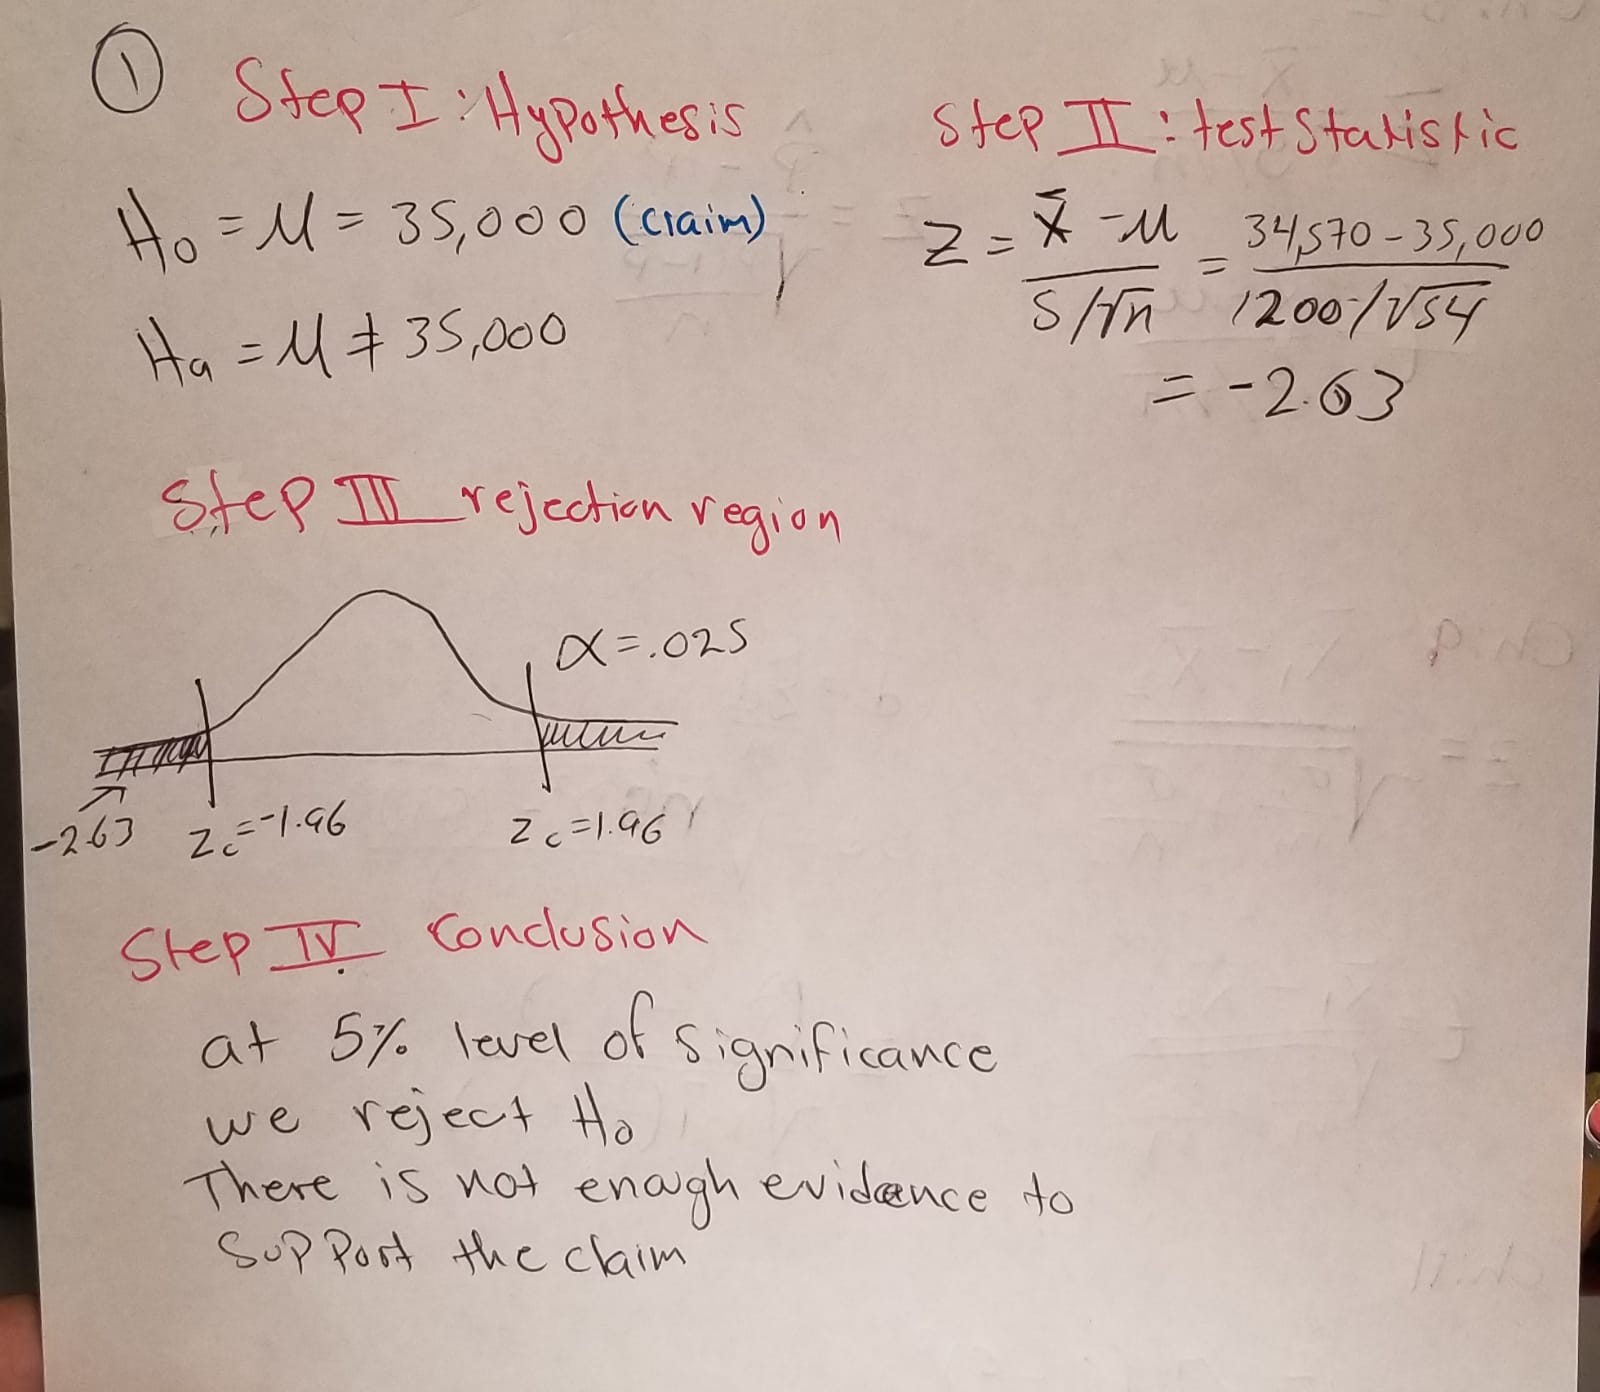 1
Step I : Hypothesis
H₀ = μ = 35,000 (claim)
Ha = μ ≠ 35,000
Step II : test Statistic
Z = (x̄ - μ)/(S/√n) = (34,570 - 35,000)/(1200/√54)
= -2.63
Step III rejection region
α = .025
-2.63 Zc = -1.96 Zc = 1.96
Step IV. Conclusion
at 5% level of significance
we reject H₀
There is not enough evidence to
support the claim